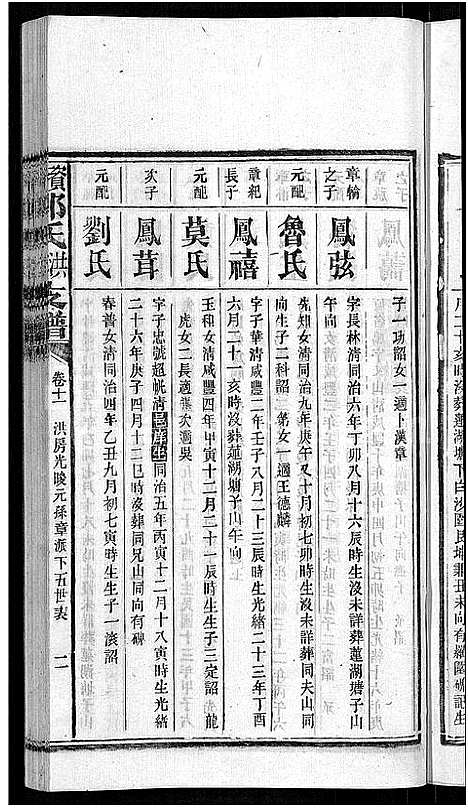 子一功韶女一適卜漢章
章翰之子
鳳弦
字長林清同治六年丁卯八月十六辰時生沒未詳葬蓮湖塘子山
元配
魯氏
先知女清同治九年庚午又十月初七卯時生沒未詳葬同夫山同
向生子二科韶 弟女一適王德麟
章紀長子
鳳禧
字子華清咸豐二年壬子八月二十三辰時生光緒二十三年丁酉
六月二十一亥時沒葬蓮湖塘子山午向
元配
莫氏
玉和女清咸豐四年甲寅十二月二十一辰時生生子三定韶 光 龍
虎女二長適 次適吳
次子
鳳茸
字子忠號超帆清邑庠生同治五年丙寅十二月十八寅時生光緒
二十六年庚子四月十二巳時沒葬同兄山同向有碑
元配
劉氏
春普女清同治四年乙丑九月初七寅時生生子一滾韶
資鄧氏洪支譜
卷十一 洪房光畯元孫章派下五世表